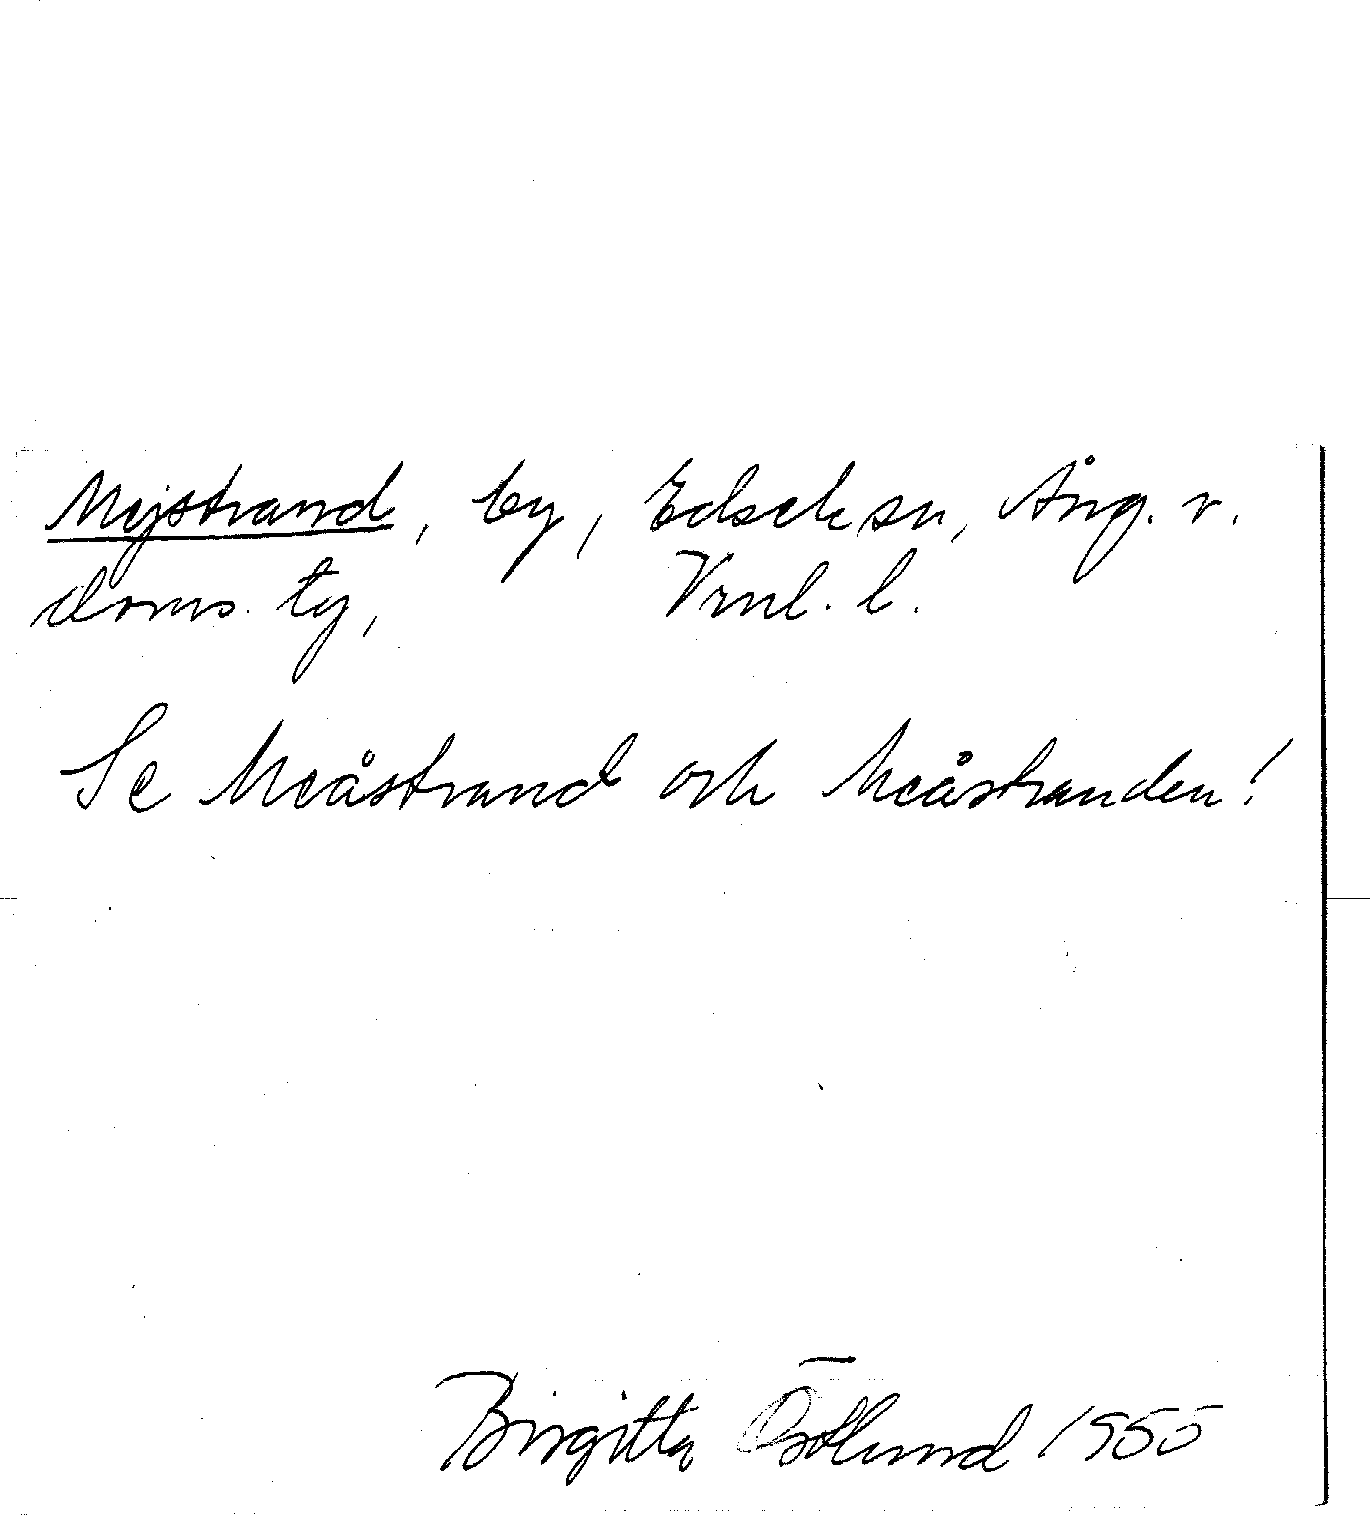 Mejstrand, by, Edsele sn, Ång. v.
doms. tg, Vrnl. l.
Se Meåstrand och Meåstranden!
Birgitta Östlund 1955